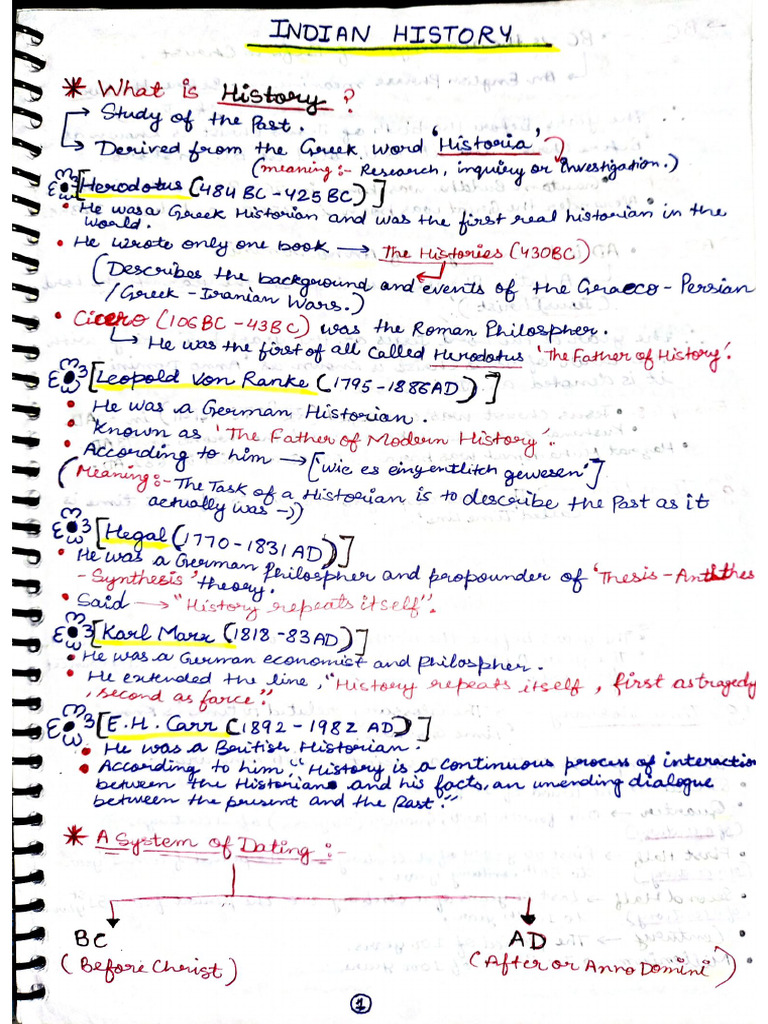 INDIAN HISTORY
* What is History?
→ Study of the Past.
→ Derived from the Greek word 'Historia,
(meaning :- Research, inquiry or investigation.)
[Herodotus (484 BC-425 BC)]
• He was a Greek Historian and was the first real historian in the
world.
• He wrote only one book → The Histories (430BC)
(Describes the background and events of the Graeco - Persian
/Greek - Iranian Wars.)
• Cicero (106 BC - 43 BC) was the Roman Philospher.
↳ He was the first of all called Hurodotus 'The Father of History'.
[Leopold Von Ranke (1795-1886AD)]
• He was a German Historian.
• Known as 'The Father of Modern History'.
• According to him → [wic es einyentlitch gewesen']
(Meaning :- The Task of a Historian is to describe the Past as it
actually was -))
[Hegal (1770-1831 AD)]
• He was a German Philospher and propounder of 'Thesis - Antithes
- Synthesis' theory.
• Said → "History repeats itself".
[Karl Marx (1818-83AD)]
• He was a German economist and Philospher.
• He extended the line, "History repeats itself, first as tragedy
, second as farce".
[E.H. Carr (1892-1982 AD)]
• He was a British Historian.
• According to him, "History is a continuous process of interaction
between the Historian and his facts, an unending dialogue
between the present and the Past".
* A System of Dating :-
BC AD
(Before Christ) (After or Anno Domini)
1